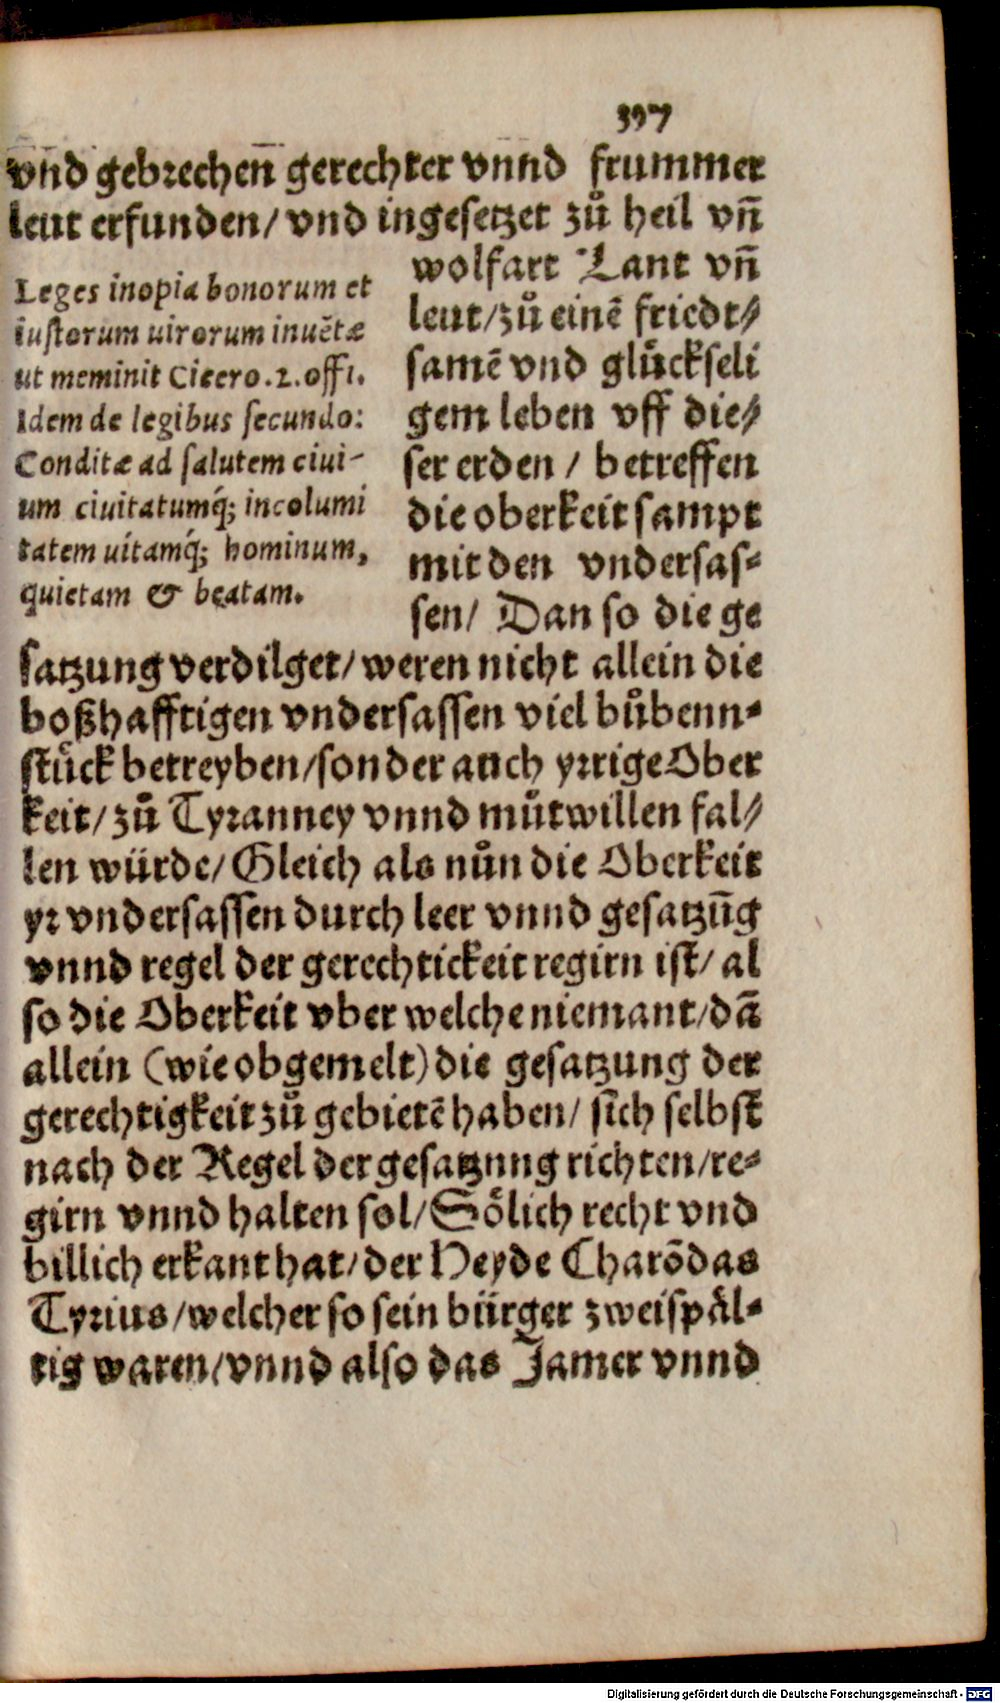 397
vnd gebrechen̄ gerechter vnnd frummer
leut erfunden/ vnd ingesetzet zů heil vñ
wolfart Lant vñ
leut/zů einē friedt⸗
samē vnd glůckseli
gem leben vff die⸗
ser erden / betreffen
die oberkeit sampt
mit den vndersas⸗
sen/ Dan so die ge
Leges inopia bonorum et
iustorum uirorum inuētæ
ut meminit Cicero.2.offi.
Idem de legibus secundo:
Conditæ ad salutem ciui-
um ciuitatumq́; incolumi
tatem uitamq́; hominum,
quietam & beatam.
satzung verdilget/ weren nicht allein die
boßhafftigen vndersassen viel bůbenn⸗
stůck betreyben/sonder auch yrrige Ober
keit/ zů Tyranney vnnd můtwillen fal⸗
len würde/ Gleich als nůn die Oberkeit
yr vndersassen durch leer vnnd gesatzūg
vnnd regel der gerechtickeit regirn ist/ al
so die Oberkeit vber welche niemant/dā
allein (wie obgemelt) die gesatzung der
gerechtigkeit zů gebietē haben/ sich selbst
nach der Regel der gesatzung richten/re⸗
girn vnnd halten sol/ Sőlich recht vnd
billich erkant hat/ der Heyde Charōdas
Tyrius/welcher so sein bürger zweispål⸗
tig waren/vnnd also das Jamer vnnd
Digitalisierung gefördert durch die Deutsche Forschungsgemeinschaft - DFG